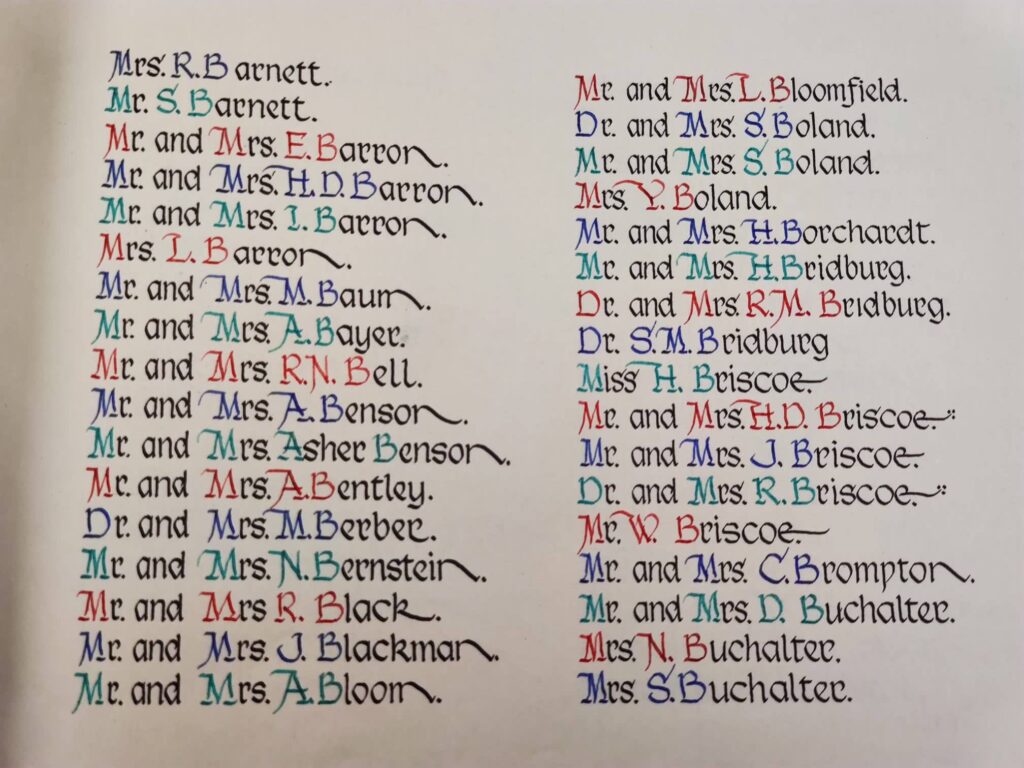 Mrs. R. Barnett.
Mr. S. Barnett.
Mr. and Mrs. E. Barron.
Mr. and Mrs. H. D. Barron.
Mr. and Mrs. I. Barron.
Mrs. L. Barron.
Mr. and Mrs. M. Baum.
Mr. and Mrs. A. Bayer.
Mr. and Mrs. R. N. Bell.
Mr. and Mrs. A. Benson.
Mr. and Mrs. Asher Benson.
Mr. and Mrs. A. Bentley.
Dr. and Mrs. M. Berber.
Mr. and Mrs. N. Bernstein.
Mr. and Mrs R. Black.
Mr. and Mrs. J. Blackman.
Mr. and Mrs. A. Bloom.
Mr. and Mrs. L. Bloomfield.
Dr. and Mrs. S. Boland.
Mr. and Mrs. S. Boland.
Mrs. Y. Boland.
Mr. and Mrs. H. Borchardt.
Mr. and Mrs. H. Bridburg.
Dr. and Mrs. R. M. Bridburg.
Dr. S. M. Bridburg
Miss H. Briscoe
Mr. and Mrs. H. D. Briscoe.
Mr. and Mrs. J. Briscoe.
Dr. and Mrs. R. Briscoe.
Mr. W. Briscoe.
Mr. and Mrs. C. Brompton.
Mr. and Mrs. D. Buchalter.
Mrs. N. Buchalter.
Mrs. S. Buchalter.